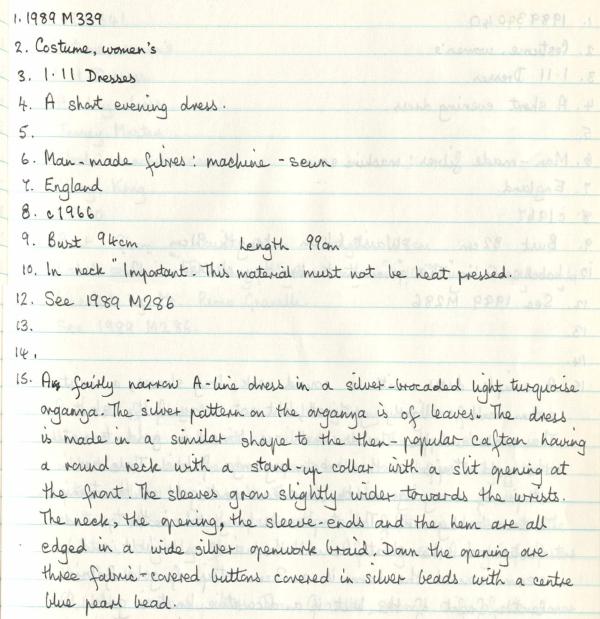 1. 1989 M339
2. Costume, women's
3. 1.11 Dresses
4. A short evening dress.
5.
6. Man-made fibres: machine-sewn
7. England
8. c1966
9. Bust 94cm Length 99cm
10. In neck "Important. This material must not be heat pressed.
12. See 1989 M286
13.
14.
15. A fairly narrow A-line dress in a silver-brocaded light turquoise
organza. The silver pattern on the organza is of leaves. The dress
is made in a similar shape to the then-popular caftan having
a round neck with a stand-up collar with a slit opening at
the front. The sleeves grow slightly wider towards the wrists.
The neck, the opening, the sleeve-ends and the hem are all
edged in a wide silver openwork braid. Down the opening are
three fabric-covered buttons covered in silver beads with a centre
blue pearl bead.